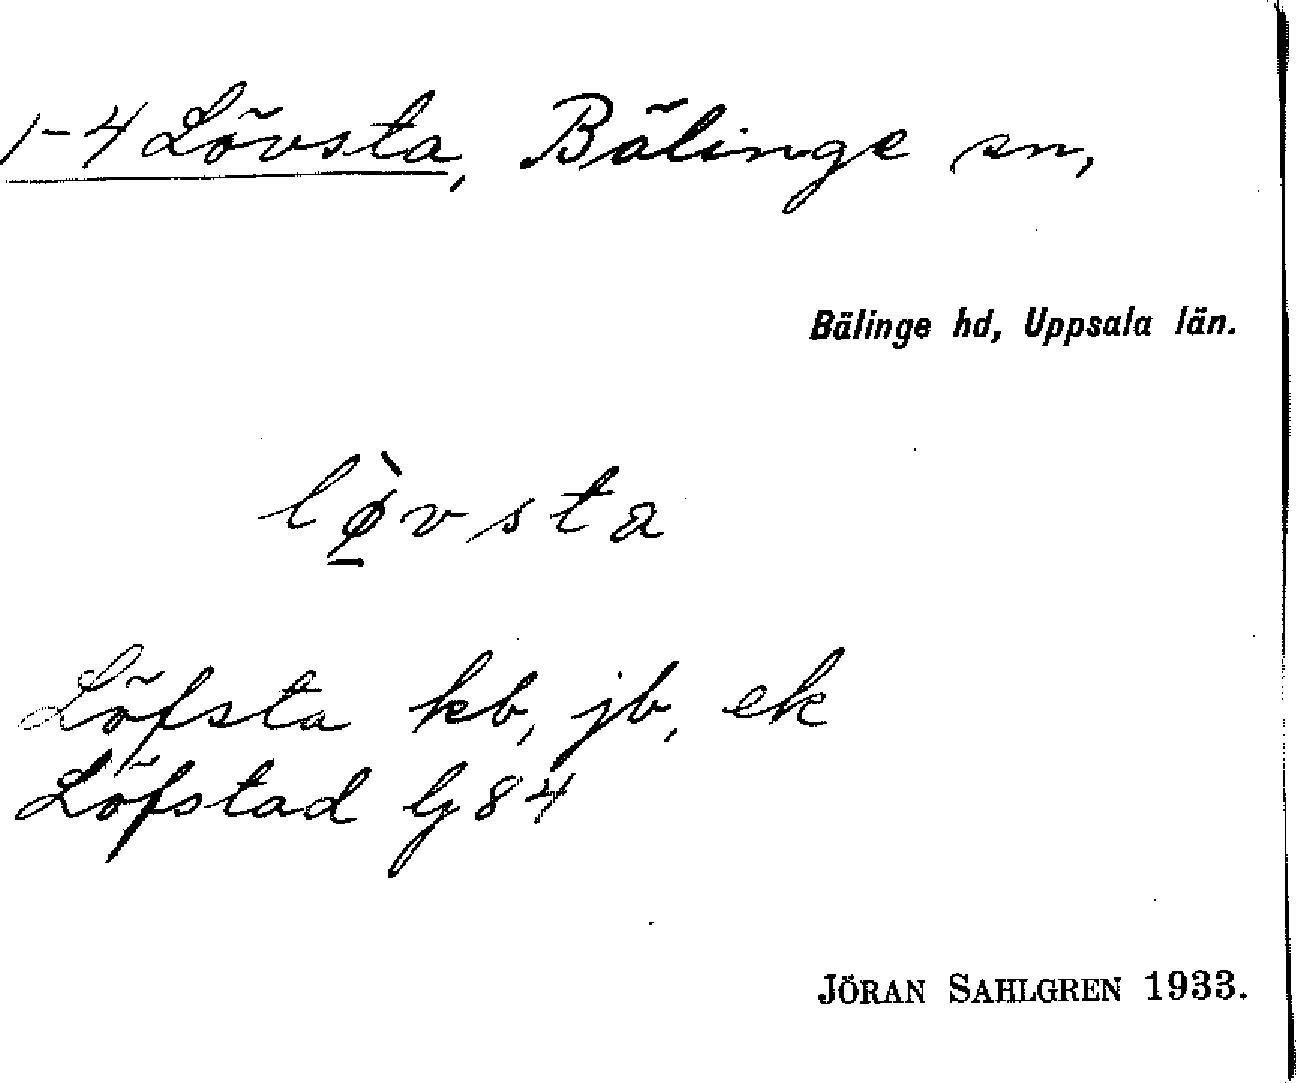 1-4 Lövsta, Bälinge sn,
Bälinge hd, Uppsala län.
lø̱̀vsta
Löfsta kb, jb, ek
Löfstad G 84
JÖRAN SAHLGREN 1933.